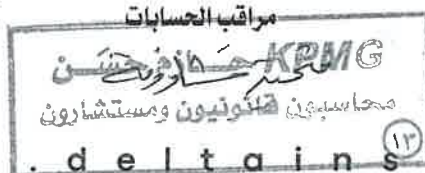 مراقب الحسابات
KPMG حازم حسن
محاسبون قانونيون ومستشارون
. d e l t a i n s
١٣